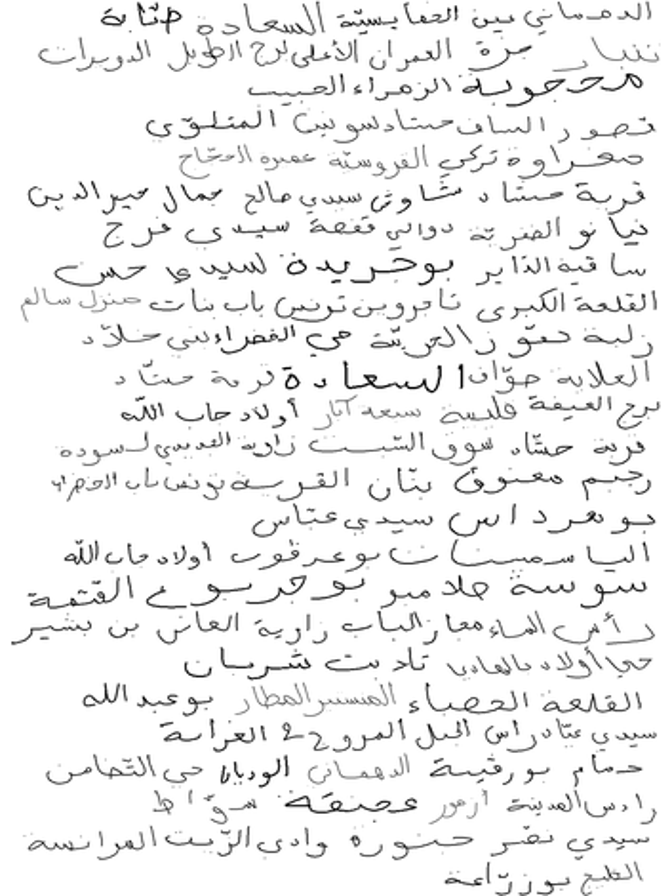 الدهماني بين الحفايسية السعادة طبّابة
ننيار جرة العمران الأعلى برج الطويل الدويرات
محجوبة الزهراء الحبيب
قصور الساف المتلوّي
صحراوة تركي الفروسيّة عميرة الحجّاج
قرية حشاد شاوش سيدي صالح جمال خير الدين
نيانو الضريّة دوالي قفصة سيدي فرج
ساقية الداير بوجريدة لسيدي حسن
القلعة الكبرى تاجروين تونس باب بنات منزل سالم
زلبة العربيّة حي الخضراء بني خلاّد
العلاية صوّاف السعادة قرية حشّاد
برج العيفة قليبية سبعة آبار أولاد جاب اللّه
قرية حشّاد سوق السّبت زاوية القديدي لسودة
رجيم معتوق بنّان القرية تونس باب الخضراء
بومرداس سيدي عبّاس
الياسمينات بوعرقوب أولاد جاب اللّه
سوسة جلامبو بوجربوع القتمة
رأس الماء معاز الباب زاوية العانس بن بشير
حي أولاد بالهادي تاديت شربان
القلعة الخصباء المنستير المطار بوعبد الله
سيدي عبّاد راس الجبل المروج 2 الغرابة
حمام بورقيبة الدهماني الوديان حي التضامن
رادس المدينة أزمور عجنقة
سيدي نصر جنورة وادي الزّيت الفرانسة
الخليج بوزرّاعة